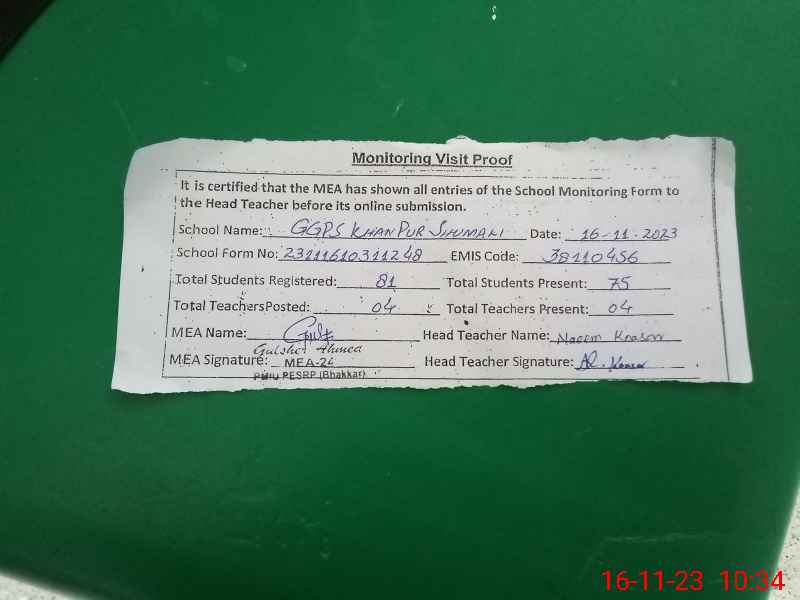 Monitoring Visit Proof
It is certified that the MEA has shown all entries of the School Monitoring Form to
the Head Teacher before its online submission.
School Name: GGPS KHANPUR SHUMALI Date: 16-11-2023
School Form No: 23111610311248 EMIS Code: 38110456
Total Students Registered: 81 Total Students Present: 75
Total TeachersPosted: 04 Total Teachers Present: 04
MEA Name: Head Teacher Name: Naeem
Gulsher Ahmed
MEA Signature: MEA-24 Head Teacher Signature:
PMIU PESRP (Bhakkar)
16-11-23 10:34